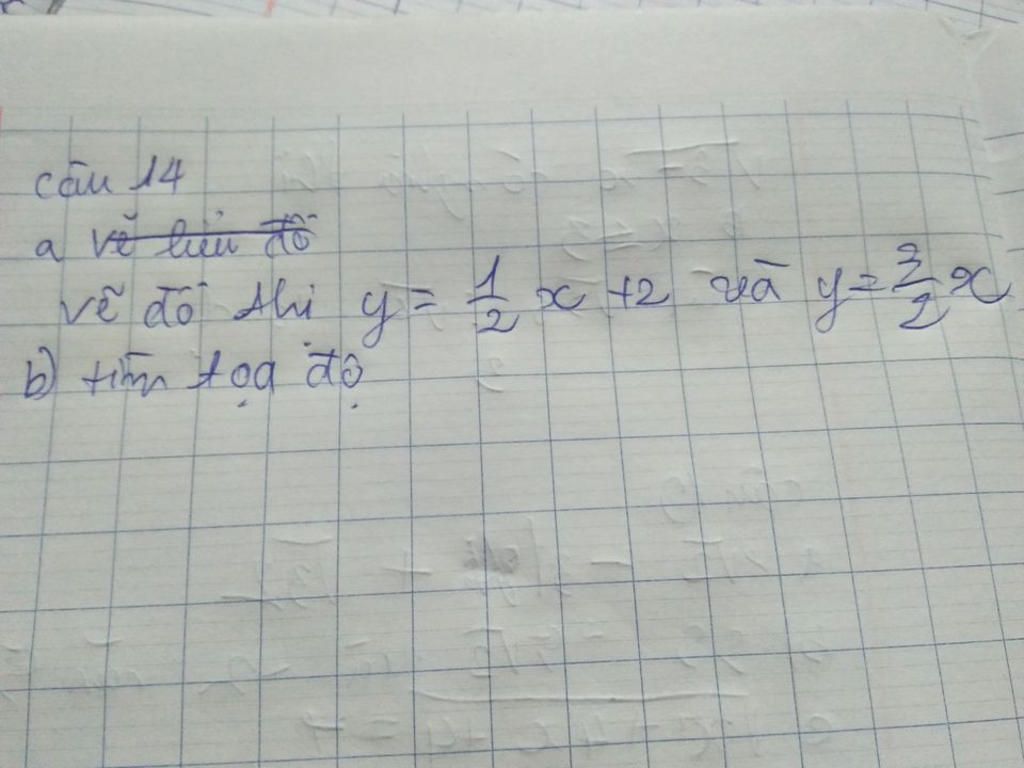 câu 14
a vẽ biểu đồ
vẽ đồ thị y = 1/2 x + 2 và y = 3/2 x
b) tìm tọa độ